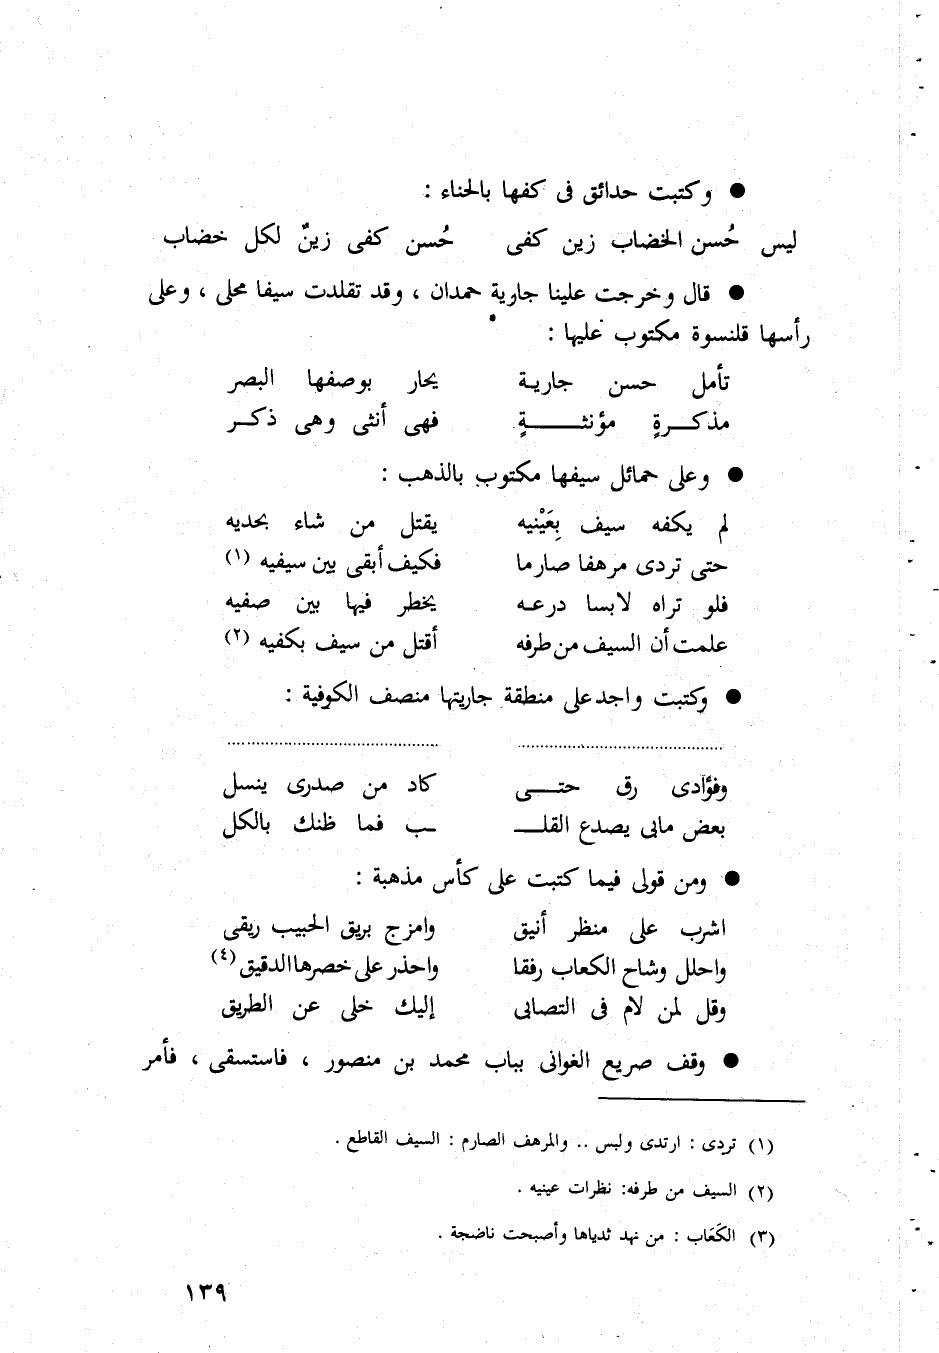 ● وكتبت حدائق فى كفها بالحناء :
ليس حُسن الخضاب زين كفى حُسن كفى زينٌ لكل خضاب
● قال وخرجت علينا جارية حمدان ، وقد تقلدت سيفا محلى ، وعلى
رأسها قلنسوة مكتوب عليها :
تأمل حسن جارية يحار بوصفها البصر
مذكــرةٍ مؤنثــــةٍ فهى أنثى وهى ذكــر
● وعلى حمائل سيفها مكتوب بالذهب :
لم يكفه سيف بِعَيْنيه يقتل من شاء بحديه
حتى تردى مرهفا صارما فكيف أبقى بين سيفيه (١)
فلو تراه لابسا درعه يخطر فيها بين صفيه
علمت أن السيف من طرفه أقتل من سيف بكفيه (٢)
● وكتبت واجد على منطقة جاريتها منصف الكوفية :
........................................ ........................................
وفؤادى رق حتــى كاد من صدرى ينسل
بعض مابى يصدع القلــ ــب فما ظنك بالكل
● ومن قولى فيما كتبت على كأس مذهبة :
اشرب على منظر أنيق وامزج بريق الحبيب ريقى
واحلل وشاح الكعاب رفقا واحذر على خصرها الدقيق (٤)
وقل لمن لام فى التصابى إليك خلى عن الطريق
● وقف صريع الغوانى بباب محمد بن منصور ، فاستسقى ، فأمر
(١) تردى : ارتدى ولبس .. والمرهف الصارم : السيف القاطع .
(٢) السيف من طرفه: نظرات عينيه .
(٣) الكَعَاب : من نهد ثدياها وأصبحت ناضجة .
١٣٩